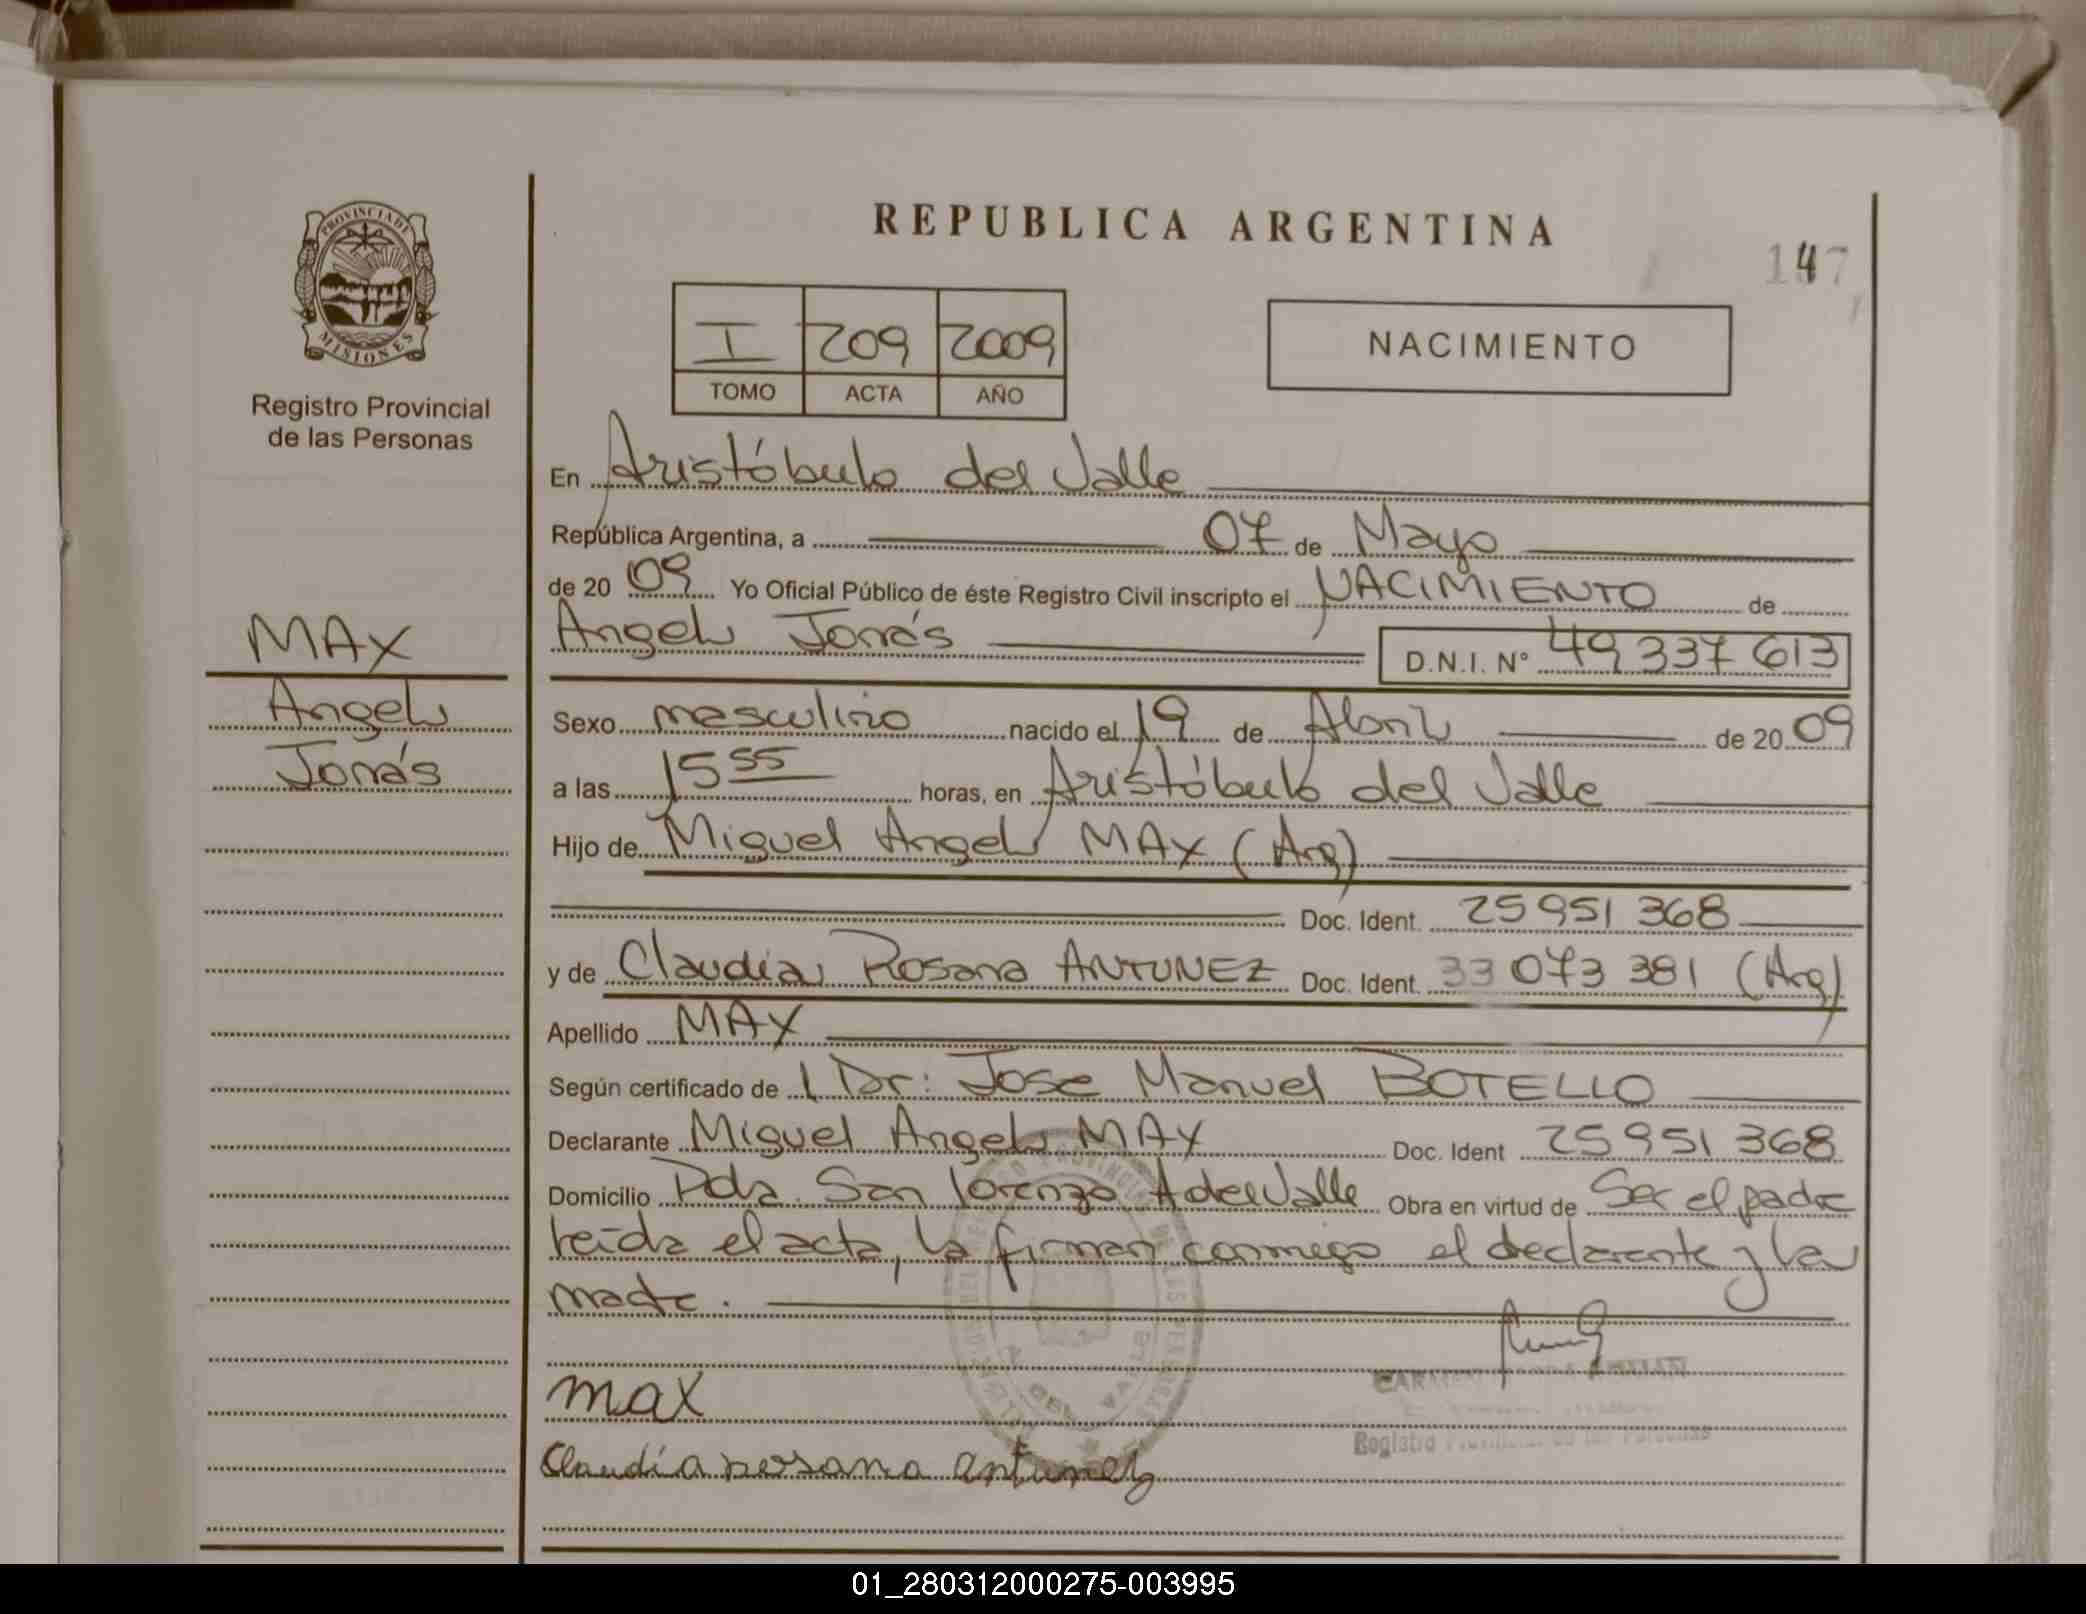 REPUBLICA ARGENTINA
147
PROVINCIA DE
MISIONES
Registro Provincial
de las Personas
I 209 2009
TOMO ACTA AÑO
NACIMIENTO
En Aristóbulo del Valle
República Argentina, a 07 de Mayo
de 2009 Yo Oficial Público de éste Registro Civil inscripto el NACIMIENTO de
Angel Jonás D.N.I. N° 49 337 613
MAX
Angel
Jonás
Sexo masculino nacido el 19 de Abril de 2009
a las 15 55 horas, en Aristóbulo del Valle
Hijo de Miguel Angel MAX (Arg)
Doc. Ident. 25 951 368
y de Claudia Rosana ANTUNEZ Doc. Ident. 33 073 381 (Arg)
Apellido MAX
Según certificado de Dr: Jose Manuel BOTELLO
Declarante Miguel Angel MAX Doc. Ident 25 951 368
Domicilio Pdz. San Lorenzo A del Valle Obra en virtud de Ser el padre
leida el acta, la firman conmigo el declarante y la
madre.
max
Claudia rosana antunez
Registro Provincial de las Personas
01_280312000275-003995